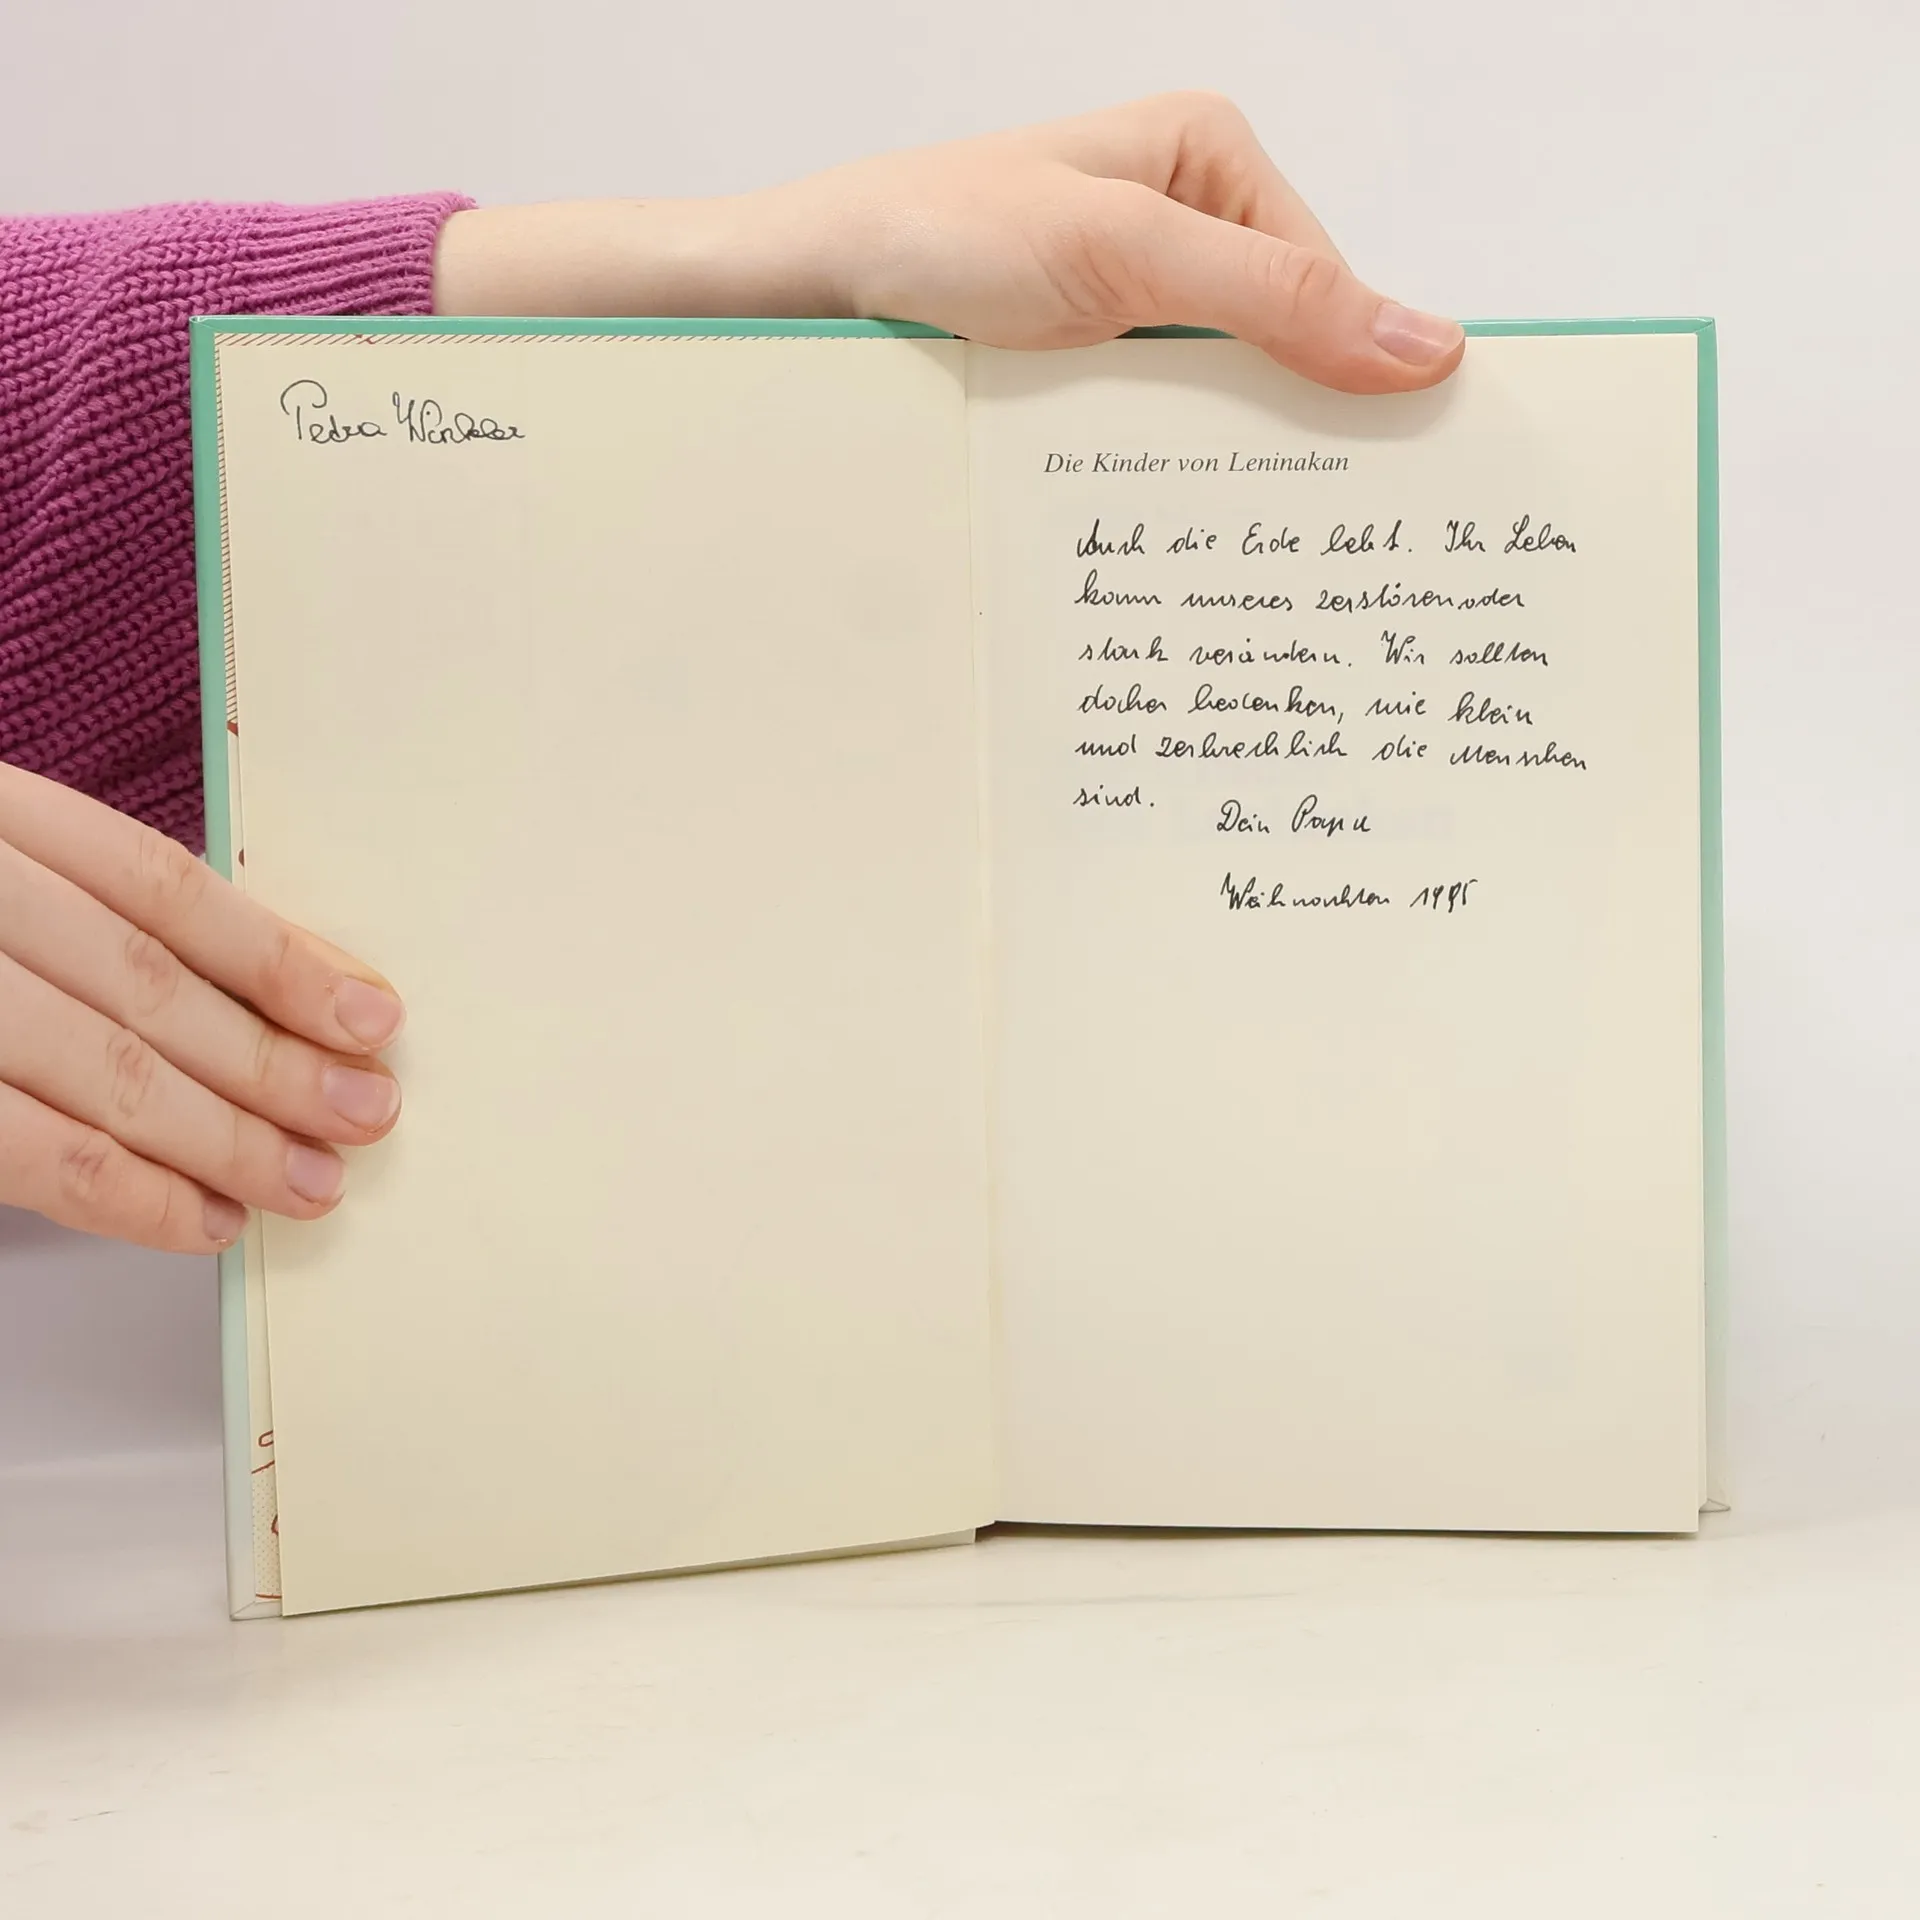 Petra Winkler
Die Kinder von Leninakan
Auch die Erde lebt. Ihr Leben
kann unseres zerstören oder
stark verändern. Wir sollten
daher bedenken, wie klein
und zerbrechlich die Menschen
sind.
Dein Papa
Weihnachten 1995